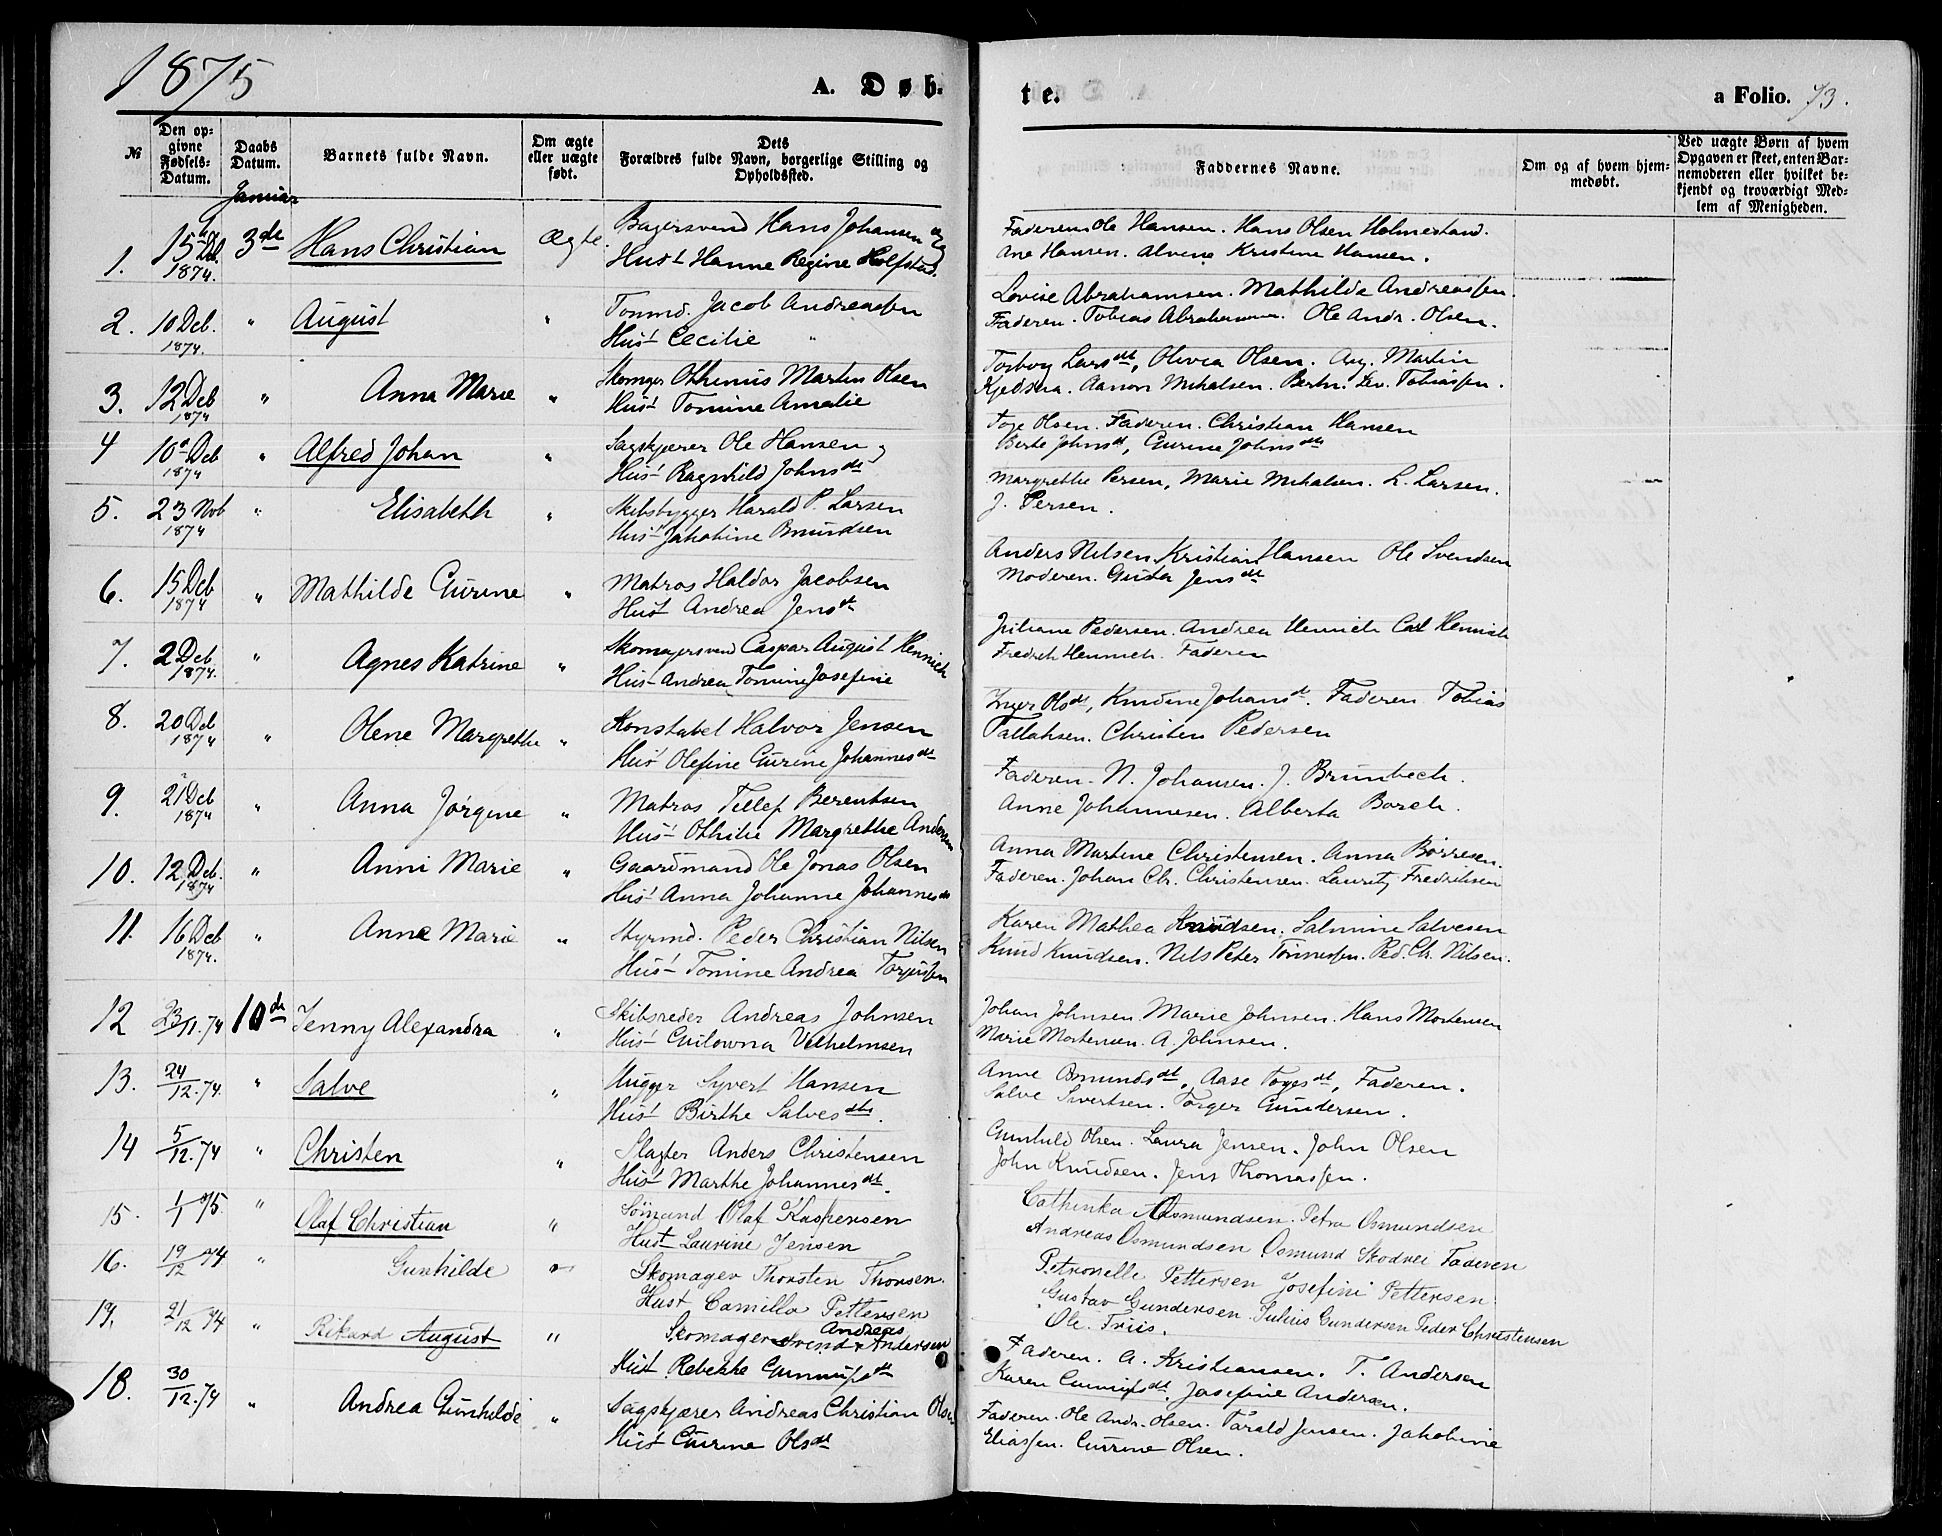 1875
A. Døb-
te.
a Folio. 73.
№
Den op-
givne
Fødsels-
Datum.
Daabs
Datum.
Barnets fulde Navn.
Om ægte
eller uægte
født.
Dets
Forældres fulde Navn, borgerlige Stilling og
Opholdssted.
Faddernes Navne.
Om og af hvem hjem-
medøbt.
Ved uægte Børn af hvem
Opgaven er skeet, enten Bar-
nemoderen eller hvilket be-
kjendt og troværdigt Med-
lem af Menigheden.
Januar
1. 15 Deb. 1874. 3de Hans Christian Ægte.
Bagersvend Hans Johansen og
Hust Hanne Regine Rolfstad.
Faderen Ole Hansen. Hans Olsen Holmestrand.
Ane Hansen. Alvene Kristine Hansen.
2. 10 Deb. 1874. " August "
Tømmd. Jacob Andreassen
Hust Cecilie "
Lovise Abrahamsen. Mathilde Andreassen.
Faderen. Tobias Abrahamsen. Ole Andr. Olsen.
3. 12 Deb 1874 " Anna Marie "
Skomger Othinius Martin Olsen
Hust Tomine Amalie
Torborg Larsdtt, Olivia Olsen. Aug. Martin
Aanon Mikalsen. Bernh. Lev. Tobiassen.
4 10de Deb 1874 " Alfred Johan "
Sagskjærer Ole Hansen
Hust Ragnhild Johnsdt
Toge Olsen. Faderen. Christian Hansen
Berte Johnsdt, Gurine Johnsdtt
5. 23 Nob 1874 " Elisabeth "
Skibsbygger Harald P. Larsen
Hust Jakobine Omundsen
Margrethe Persen, Marie Mikalsen. L. Larsen.
J. Persen.
6. 15 Deb 1874 " Mathilde Gurine "
Matros Haldor Jacobsen
Hust Andrea Jensdt
Anders Nilsen Kristian Hansen Ole Svendsen
Moderen. Gusta Jensdtt
7. 2 Deb 1874. " Agnes Katrine "
Skomagersvend Caspar August Hennich
Hust Andrea Tomine Josefine
Juliane Pedersen. Andrea Hennich Carl Hennich
Fredrik Hennich. Faderen
8. 20 Deb 1874 " Olene Margrethe "
Konstabel Halvor Jensen
Hust Olefine Gurine Johannesdt
Inger Olsdt, Knudine Johansdt. Faderen Tobias
Tallaksen. Christen Pedersen
9. 21 Deb 1874 " Anna Jørgine "
Matros Tellef Berentsen
Hust Othilie Margrethe Andersen
Faderen. N. Johansen. J. Brunbech.
Anne Johannesen. Alberta Borch.
10. 12 Deb. 1874 " Anni Marie "
Gaardmand Ole Jonas Olsen
Hust Anna Johanne Johannesdt
Anna Martine Christensen. Anna Børresen.
Faderen. Johan Chr. Christensen. Lauritz Fredriksen
11. 16 Deb 1874. " Anne Marie "
Styrmd. Peder Christian Nilsen
Hust Tomine Andrea Torjussen
Karen Mathea Knudsen. Salmine Salvesen
Knud Knudsen. Nils Peter Tønnessen. Ped. Ch. Nilsen.
12 23/11.74 10de Jenny Alexandra "
Skibsreder Andreas Johnsen
Hust Vilhelmsen
Johan Johnsen Marie Johnsen. Hans Mortensen
Marie Mortensen. A. Johnsen.
13. 24/12.74. " Salve "
Hugger Syvert Hansen
Hust Birthe Salvesdtr.
Anne Omundsdtt, Aase Togesdt, Faderen.
Salve Sivertsen. Torger Gundersen.
14 5/12.74 " Christen "
Slagter Anders Christensen
Hust Marthe Johannesdt.
Gunhild Olsen. Laura Jensen. John Olsen
John Knudsen. Jens Thomassen.
15. 1/1 75. " Olaf Christian "
Sømand Olaf Kaspersen
Hust Laurine Jensen
Cathinka Asmundsen. Petra Osmundsen
Andreas Osmundsen Osmund Skodvei Faderen
16. 19/12 74 " Gunhilde "
Skomager Thorsten Thorsen.
Hust Camilla Pettersen
Petronelle Pettersen Josefini Pettersen
Gustav Gundersen. Julius Gundersen Peder Christensen
Ole Friis.
17. 21/12 74 " Rikard August "
Skomagersvend Andreas Andersen
Hust Rebekke Gunnufsdt
Faderen. A. Kristiansen. T. Andersen
Karen Gunnufsdt. Josefine Andersen.
18. 30/12.74 " Andrea Gunhilde "
Sagskjærer Andreas Christian Olsen
Hust Gurine Olsdt
Faderen. Ole Andr. Olsen. Tarald Jensen. Jakobine
Eliassen. Gurine Olsen.